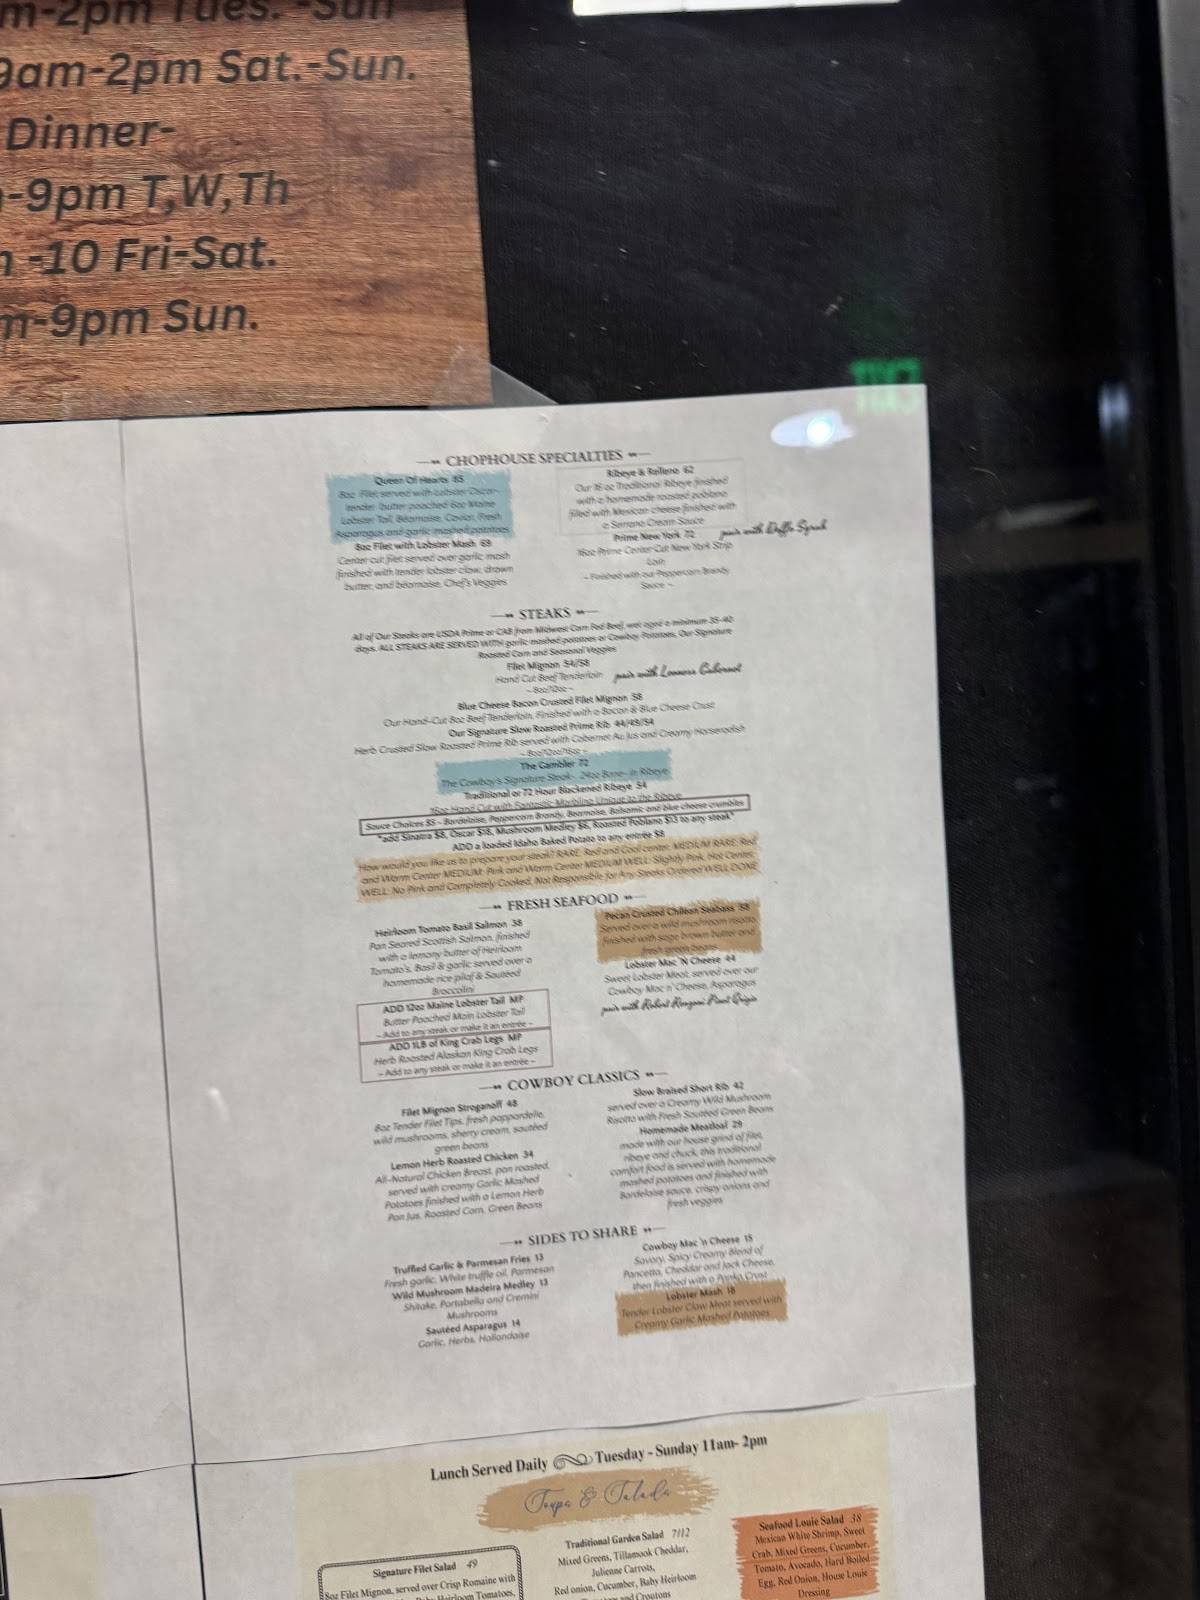 m-2pm Tues. -Sun
9am-2pm Sat.-Sun.
Dinner-
-9pm T,W,Th
-10 Fri-Sat.
m-9pm Sun.
CHOPHOUSE SPECIALTIES
Queen Of Hearts 85
8oz Filet served with Lobster Oscar-
tender butter poached 6oz Maine
Lobster Tail, Béarnaise, Caviar, Fresh
Asparagus and garlic mashed potatoes
8oz Filet with Lobster Mash 69
Center cut filet served over garlic mash
finished with tender lobster claw, drawn
butter, and béarnaise, Chef's Veggies
Ribeye & Relleno 62
Our 16 oz Traditional Ribeye finished
with a homemade roasted poblano
filled with Mexican cheese finished with
a Serrano Cream Sauce
Prime New York 72 pair with Syrah
16oz Prime Center Cut New York Strip
Loin
- Finished with our Peppercorn Brandy
Sauce -
STEAKS
All of Our Steaks are USDA Prime or CAB from Midwest Corn Fed Beef, wet aged a minimum 35-42
days. ALL STEAKS ARE SERVED WITH garlic mashed potatoes or Cowboy Potatoes, Our Signature
Roasted Corn and Seasonal Veggies
Filet Mignon 54/58
Hand Cut Beef Tenderloin pair with Cabernet
- 8oz/12oz -
Blue Cheese Bacon Crusted Filet Mignon 58
Our Hand-Cut 8oz Beef Tenderloin, Finished with a Bacon & Blue Cheese Crust
Our Signature Slow Roasted Prime Rib 44/49/54
Herb Crusted Slow Roasted Prime Rib served with Cabernet Au Jus and Creamy Horseradish
- 8oz/12oz/16oz -
The Gambler 72
The Cowboy's Signature Steak- 24oz Bone-in Ribeye
Traditional or 72 Hour Blackened Ribeye 54
16oz Hand Cut with Fantastic Marbling Unique to the Ribeye
Sauce Choices $5 - Bordelaise, Peppercorn Brandy, Bearnaise, Balsamic and blue cheese crumbles
*add Sinatra $8, Oscar $18, Mushroom Medley $6, Roasted Poblano $13 to any steak*
ADD a loaded Idaho Baked Potato to any entrée $8
How would you like us to prepare your steak? RARE: Red and Cool center. MEDIUM RARE: Red
and Warm Center MEDIUM: Pink and Warm Center MEDIUM WELL: Slightly Pink, Hot Center.
WELL: No Pink and Completely Cooked. Not Responsible for Any Steaks Ordered WELL DONE
FRESH SEAFOOD
Heirloom Tomato Basil Salmon 38
Pan Seared Scottish Salmon, finished
with a lemony butter of Heirloom
Tomato's, Basil & garlic served over a
homemade rice pilaf & Sautéed
Broccolini
ADD 12oz Maine Lobster Tail MP
Butter Poached Main Lobster Tail
- Add to any steak or make it an entrée -
ADD 1LB of King Crab Legs MP
Herb Roasted Alaskan King Crab Legs
- Add to any steak or make it an entrée -
Pecan Crusted Chilean Seabass 58
Served over a wild mushroom risotto
finished with sage brown butter and
fresh green beans
Lobster Mac 'N Cheese 44
Sweet Lobster Meat, served over our
Cowboy Mac n' Cheese, Asparagus
pair with Robert Pinot Grigio
COWBOY CLASSICS
Filet Mignon Stroganoff 48
8oz Tender Filet Tips, fresh pappardelle,
wild mushrooms, sherry cream, sautéed
green beans
Lemon Herb Roasted Chicken 34
All-Natural Chicken Breast, pan roasted,
served with creamy Garlic Mashed
Potatoes finished with a Lemon Herb
Pan Jus, Roasted Corn, Green Beans
Slow Braised Short Rib 42
served over a Creamy Wild Mushroom
Risotto with Fresh Sautéed Green Beans
Homemade Meatloaf 29
made with our house grind of filet,
ribeye and chuck, this traditional
comfort food is served with homemade
mashed potatoes and finished with
Bordelaise sauce, crispy onions and
fresh veggies
SIDES TO SHARE
Truffled Garlic & Parmesan Fries 13
Fresh garlic, White truffle oil, Parmesan
Wild Mushroom Madeira Medley 13
Shitake, Portabella and Cremini
Mushrooms
Sautéed Asparagus 14
Garlic, Herbs, Hollandaise
Cowboy Mac 'n Cheese 15
Savory, Spicy Creamy Blend of
Pancetta, Cheddar and Jack Cheese,
then finished with a Panko Crust
Lobster Mash 18
Tender Lobster Claw Meat served with
Creamy Garlic Mashed Potatoes
Lunch Served Daily Tuesday - Sunday 11am- 2pm
Soups & Salads
Signature Filet Salad 49
8oz Filet Mignon, served over Crisp Romaine with
Baby Heirloom Tomatoes,
Traditional Garden Salad 7/12
Mixed Greens, Tillamook Cheddar,
Julienne Carrots,
Red onion, Cucumber, Baby Heirloom
Tomatoes and Croutons
Seafood Louie Salad 38
Mexican White Shrimp, Sweet
Crab, Mixed Greens, Cucumber,
Tomato, Avocado, Hard Boiled
Egg, Red Onion, House Louie
Dressing